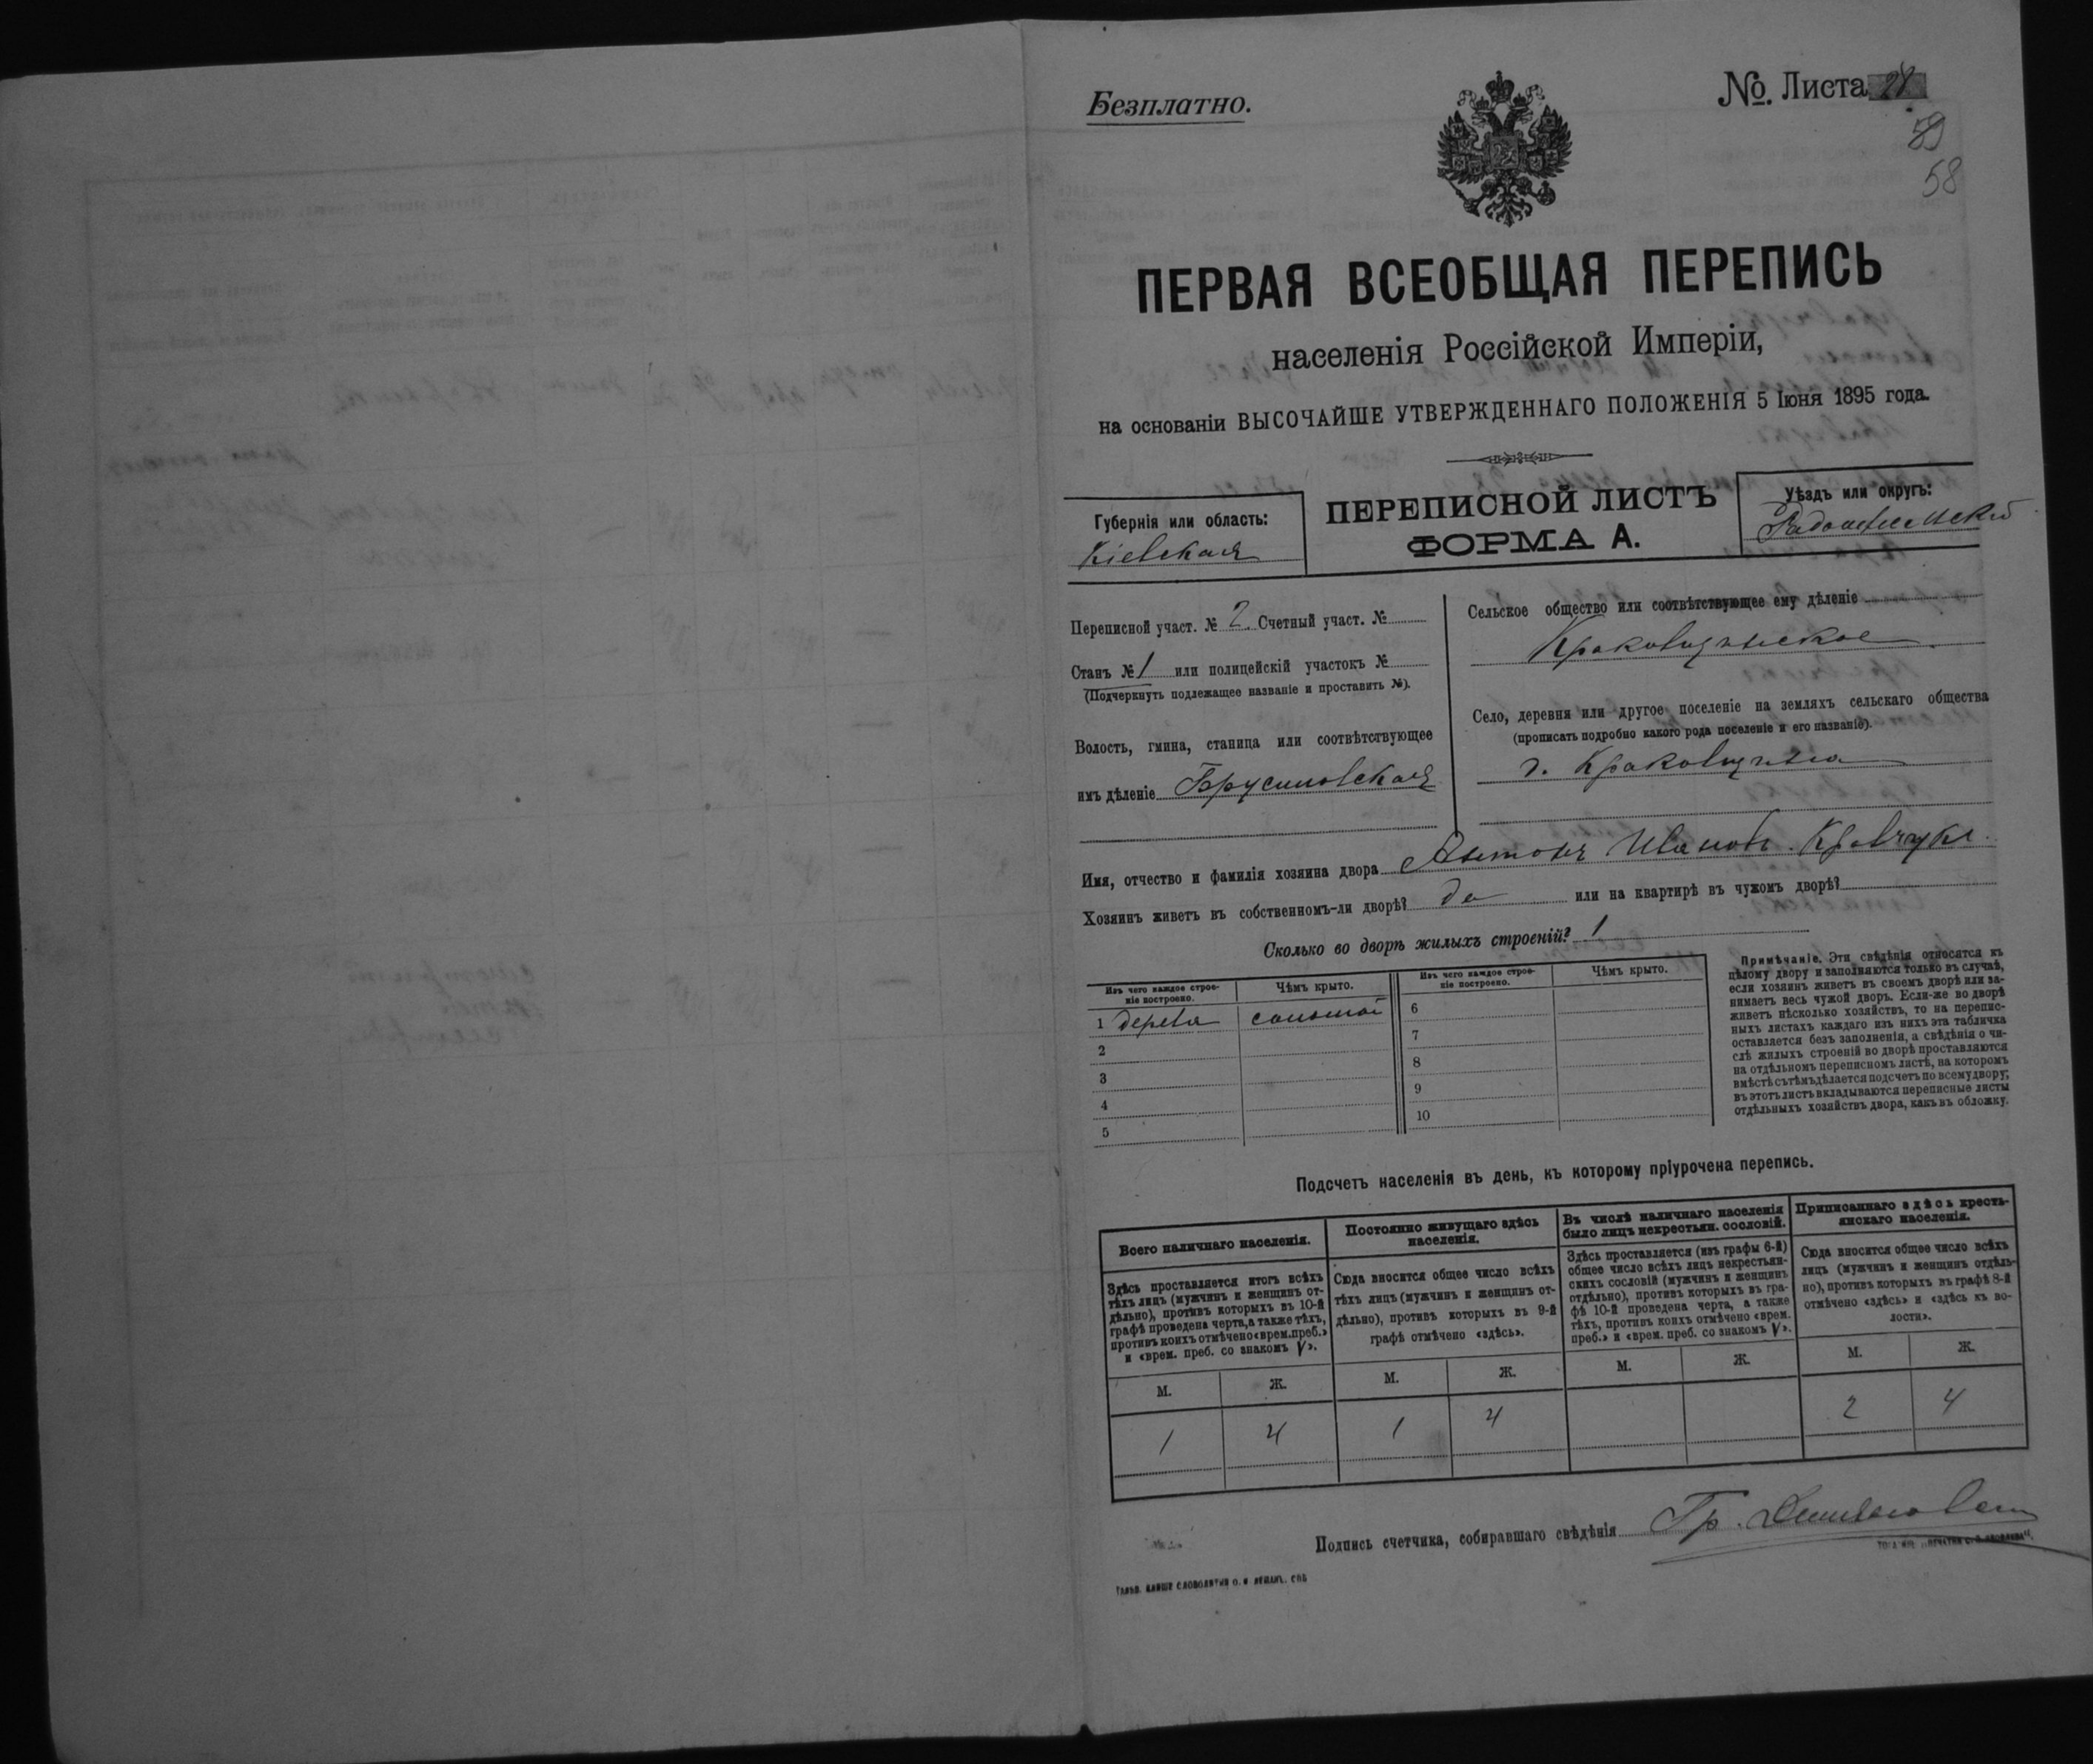 Безплатно.
№ Листа 28
59
58
ПЕРВАЯ ВСЕОБЩАЯ ПЕРЕПИСЬ
населенія Россійской Имперіи,
на основаніи ВЫСОЧАЙШЕ УТВЕРЖДЕННАГО ПОЛОЖЕНІЯ 5 Іюня 1895 года.
Губернія или область:
Кіевская
ПЕРЕПИСНОЙ ЛИСТЪ
ФОРМА А.
Уѣздъ или округъ:
Радомысльскій
Переписной участ. № 2. Счетный участ. №
Станъ № 1 или полицейскій участокъ №
(Подчеркнуть подлежащее названіе и проставить №).
Волость, гмина, станица или соотвѣтствующее
имъ дѣленіе Брусиловская
Сельское общество или соотвѣтствующее ему дѣленіе
Краковщинское
Село, деревня или другое поселеніе на земляхъ сельскаго общества
(прописать подробно какого рода поселеніе и его названіе).
д. Краковщина
Имя, отчество и фамилія хозяина двора Антонъ Ивановъ Кравчукъ
Хозяинъ живетъ въ собственномъ-ли дворѣ? да или на квартирѣ въ чужомъ дворѣ?
Сколько во дворѣ жилыхъ строеній? 1
Изъ чего каждое строе-
ніе построено.
Чѣмъ крыто.
Изъ чего каждое строе-
ніе построено.
Чѣмъ крыто.
1 дерева соломой
2
3
4
5
6
7
8
9
10
Примѣчаніе. Эти свѣдѣнія относятся къ
цѣлому двору и заполняются только въ случаѣ,
если хозяинъ живетъ въ своемъ дворѣ или за-
нимаетъ весь чужой дворъ. Если-же во дворѣ
живетъ нѣсколько хозяйствъ, то на перепис-
ныхъ листахъ каждаго изъ нихъ эта табличка
оставляется безъ заполненія, а свѣдѣнія о чи-
слѣ жилыхъ строеній во дворѣ проставляются
на отдѣльномъ переписномъ листѣ, на которомъ
вмѣстѣ съ тѣмъ дѣлается подсчетъ по всему двору;
въ этотъ листъ вкладываются переписные листы
отдѣльныхъ хозяйствъ двора, какъ въ обложку.
Подсчетъ населенія въ день, къ которому пріурочена перепись.
Всего наличнаго населенія.
Здѣсь проставляется итогъ всѣхъ
тѣхъ лицъ (мужчинъ и женщинъ от-
дѣльно), противъ которыхъ въ 10-й
графѣ проведена черта, а также тѣхъ,
противъ коихъ отмѣчено «врем. преб.»
и «врем. преб. со знакомъ V».
М. Ж.
1 4
Постоянно живущаго здѣсь
населенія.
Сюда вносится общее число всѣхъ
тѣхъ лицъ (мужчинъ и женщинъ от-
дѣльно), противъ которыхъ въ 9-й
графѣ отмѣчено «здѣсь».
М. Ж.
1 4
Въ числѣ наличнаго населенія
было лицъ некрестьян. сословій.
Здѣсь проставляется (изъ графы 6-й)
общее число всѣхъ лицъ некрестьян-
скихъ сословій (мужчинъ и женщинъ
отдѣльно), противъ которыхъ въ гра-
фѣ 10-й проведена черта, а также
тѣхъ, противъ коихъ отмѣчено «врем.
преб.» и «врем. преб. со знакомъ V».
М. Ж.
Приписаннаго здѣсь кресть-
янскаго населенія.
Сюда вносится общее число всѣхъ
лицъ (мужчинъ и женщинъ отдѣль-
но), противъ которыхъ въ графѣ 8-й
отмѣчено «здѣсь» и «здѣсь къ во-
лости».
М. Ж.
2 4
Подпись счетчика, собиравшаго свѣдѣнія Гр.